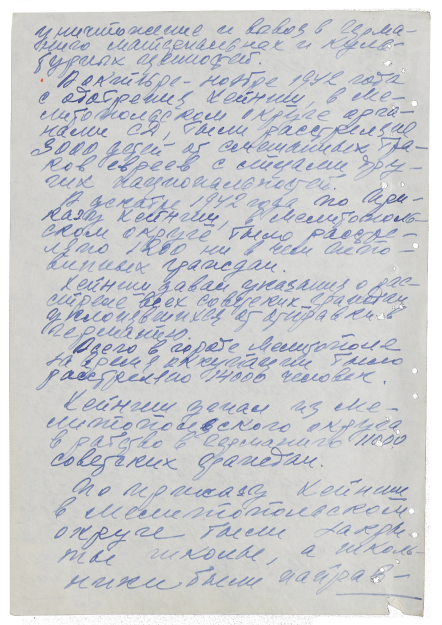 уничтожение и вывоз в Герма-
нию материальных и куль-
турных ценностей.
В октябре-ноябре 1942 года
с одобрения Хейниш, в Ме-
литопольском округе орга-
нами СД, были расстреляны
3000 детей от смешанных бра-
ков евреев с лицами дру-
гих национальностей.
В декабре 1942 года по при-
казу Хейниш, в Мелитополь-
ском округе было расстре-
ляно 1200 ни в чем непо-
винных граждан.
Хейниш давал указания о рас-
стреле всех советских граждан
уклонявшихся от отправки в
Германию.
Всего в городе Мелитополе
за время оккупации было
расстреляно 14000 человек.
Хейниш угнал из Ме-
литопольского округа
в рабство в Германию
советских граждан.
По приказу Хейниш
в Мелитопольском
округе были закры-
ты школы, а школь-
ники были направ-